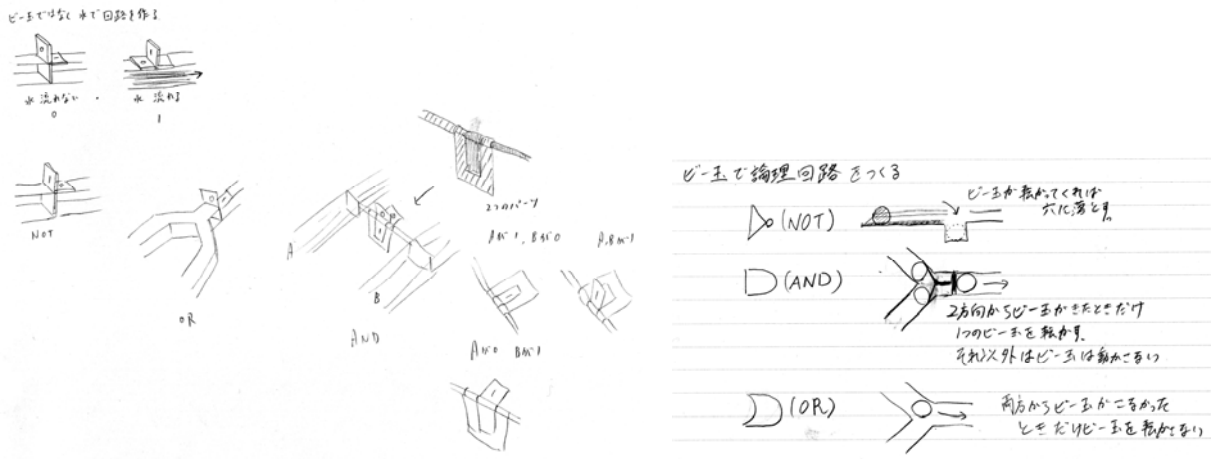 ビー玉ではなく 水で回路を作る
0
1
水 流れない
0
水 流れる
1
NOT
OR
A
B
AND
2つのパーツ
Aが1, Bが0
A,Bが1
Aが0 Bが1
ビー玉で論理回路をつくる
(NOT)
ビー玉が転がってくれば
穴に落とす。
(AND)
2方向からビー玉がきたときだけ
1つのビー玉を転がす。
それ以外はビー玉は動かさない
(OR)
両方からビー玉がこなかった
ときだけビー玉を転がさない